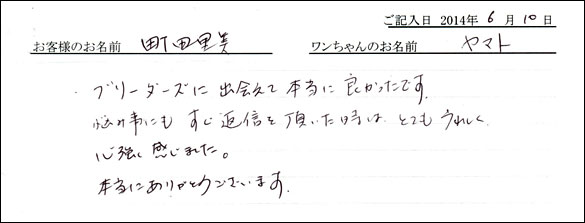 ご記入日 2014年 6 月 10 日
お客様のお名前 町田里美 ワンちゃんのお名前 ヤマト
・ブリーダーズに出会えて本当に良かったです。
悩み事にもすぐ返信を頂いた時は、とてもうれしく
心強く感じました。
本当にありがとうございます。